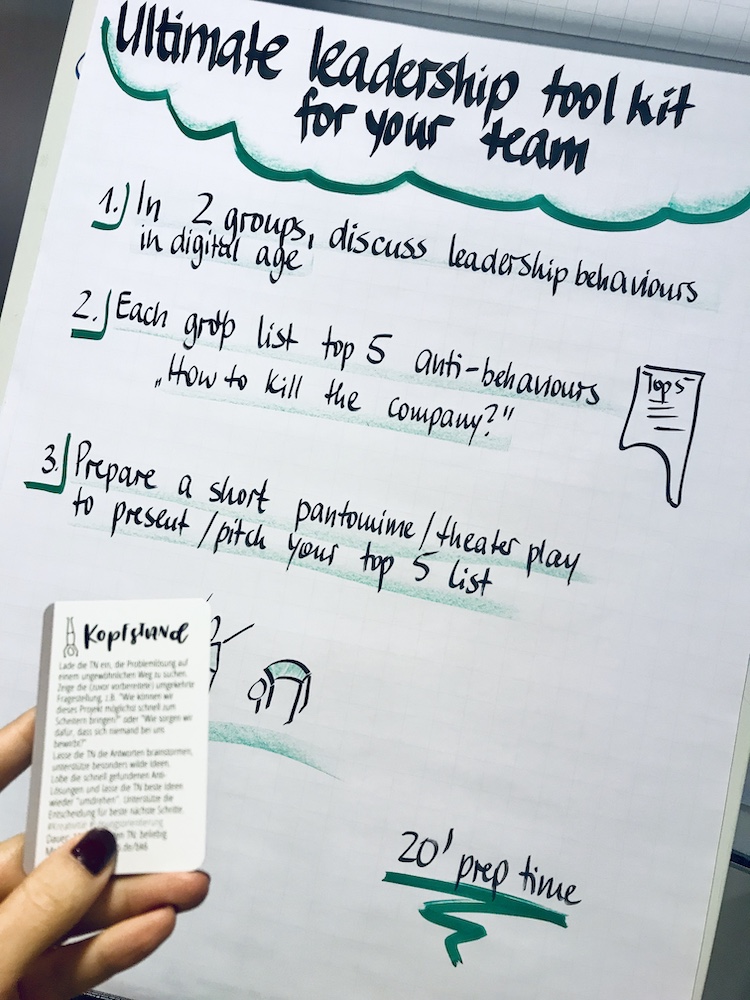 Ultimate leadership tool kit
for your team
1.) In 2 groups, discuss leadership behaviours
in digital age
2.) Each group list top 5 anti-behaviours
„How to kill the company?"
Top 5
3.) Prepare a short pantomime/theater play
to present/pitch your top 5 list
Kopfstand
Lade die TN ein, die Problemlösung auf
einem ungewöhnlichen Weg zu suchen.
Zeige die (zuvor vorbereitete) umgekehrte
Fragestellung, z.B. "Wie können wir
dieses Projekt möglichst schnell zum
Scheitern bringen?" oder "Wie sorgen wir
dafür, dass sich niemand bei uns
bewirbt?"
Lasse die TN die Antworten brainstormen,
unterstütze besonders wilde Ideen.
Lobe die schnell gefundenen Anti-
Lösungen und lasse die TN beste Ideen
wieder "umdrehen". Unterstütze die
Entscheidung für beste nächste Schritte.
#Kreativität
Dauer: TN: beliebig
.de/bk6
20' prep time